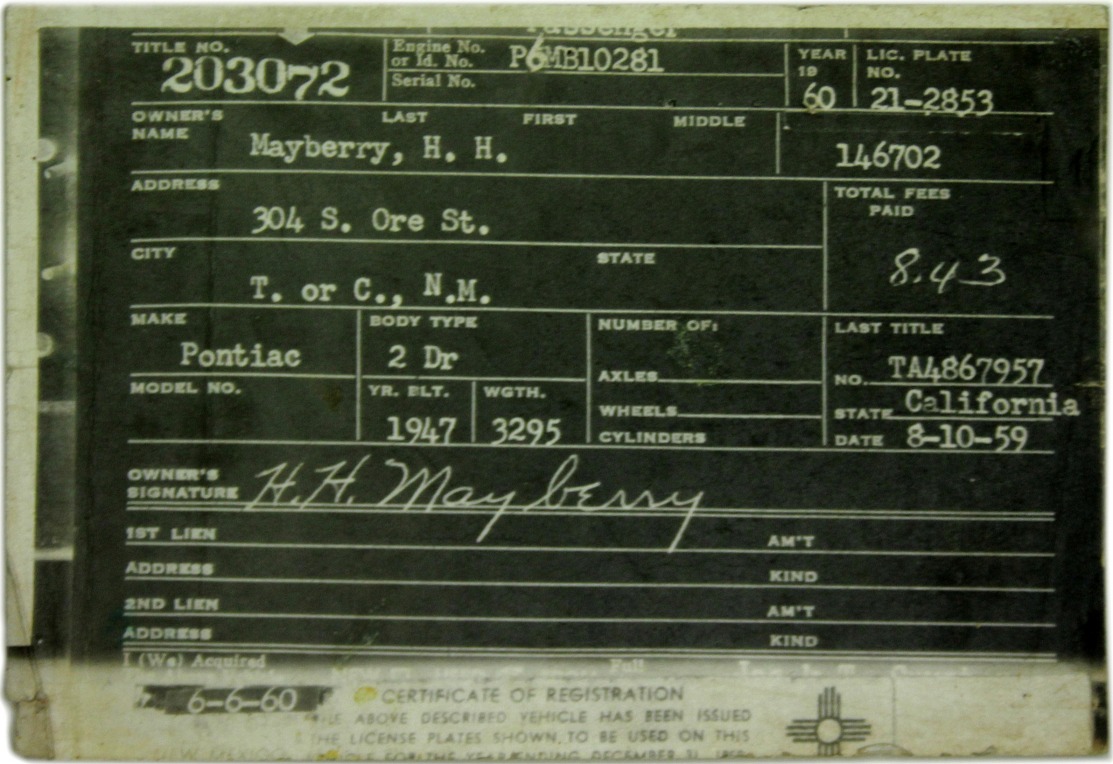 Passenger
TITLE NO. 203072 Engine No. or Id. No. P6MB10281 Serial No. YEAR 19 60 LIC. PLATE NO. 21-2853
OWNER'S NAME LAST FIRST MIDDLE
Mayberry, H. H. 146702
ADDRESS TOTAL FEES PAID
304 S. Ore St. 8.43
CITY STATE
T. or C., N.M.
MAKE BODY TYPE NUMBER OF: LAST TITLE
Pontiac 2 Dr AXLES NO. TA4867957
MODEL NO. YR. BLT. WGTH. WHEELS STATE California
1947 3295 CYLINDERS DATE 8-10-59
OWNER'S SIGNATURE H.H. Mayberry
1ST LIEN AM'T
ADDRESS KIND
2ND LIEN AM'T
ADDRESS KIND
I (We) Acquired Full
6-6-60 CERTIFICATE OF REGISTRATION
THE ABOVE DESCRIBED VEHICLE HAS BEEN ISSUED
THE LICENSE PLATES SHOWN, TO BE USED ON THIS
NEW MEXICO VEHICLE FOR THE YEAR ENDING DECEMBER 31,